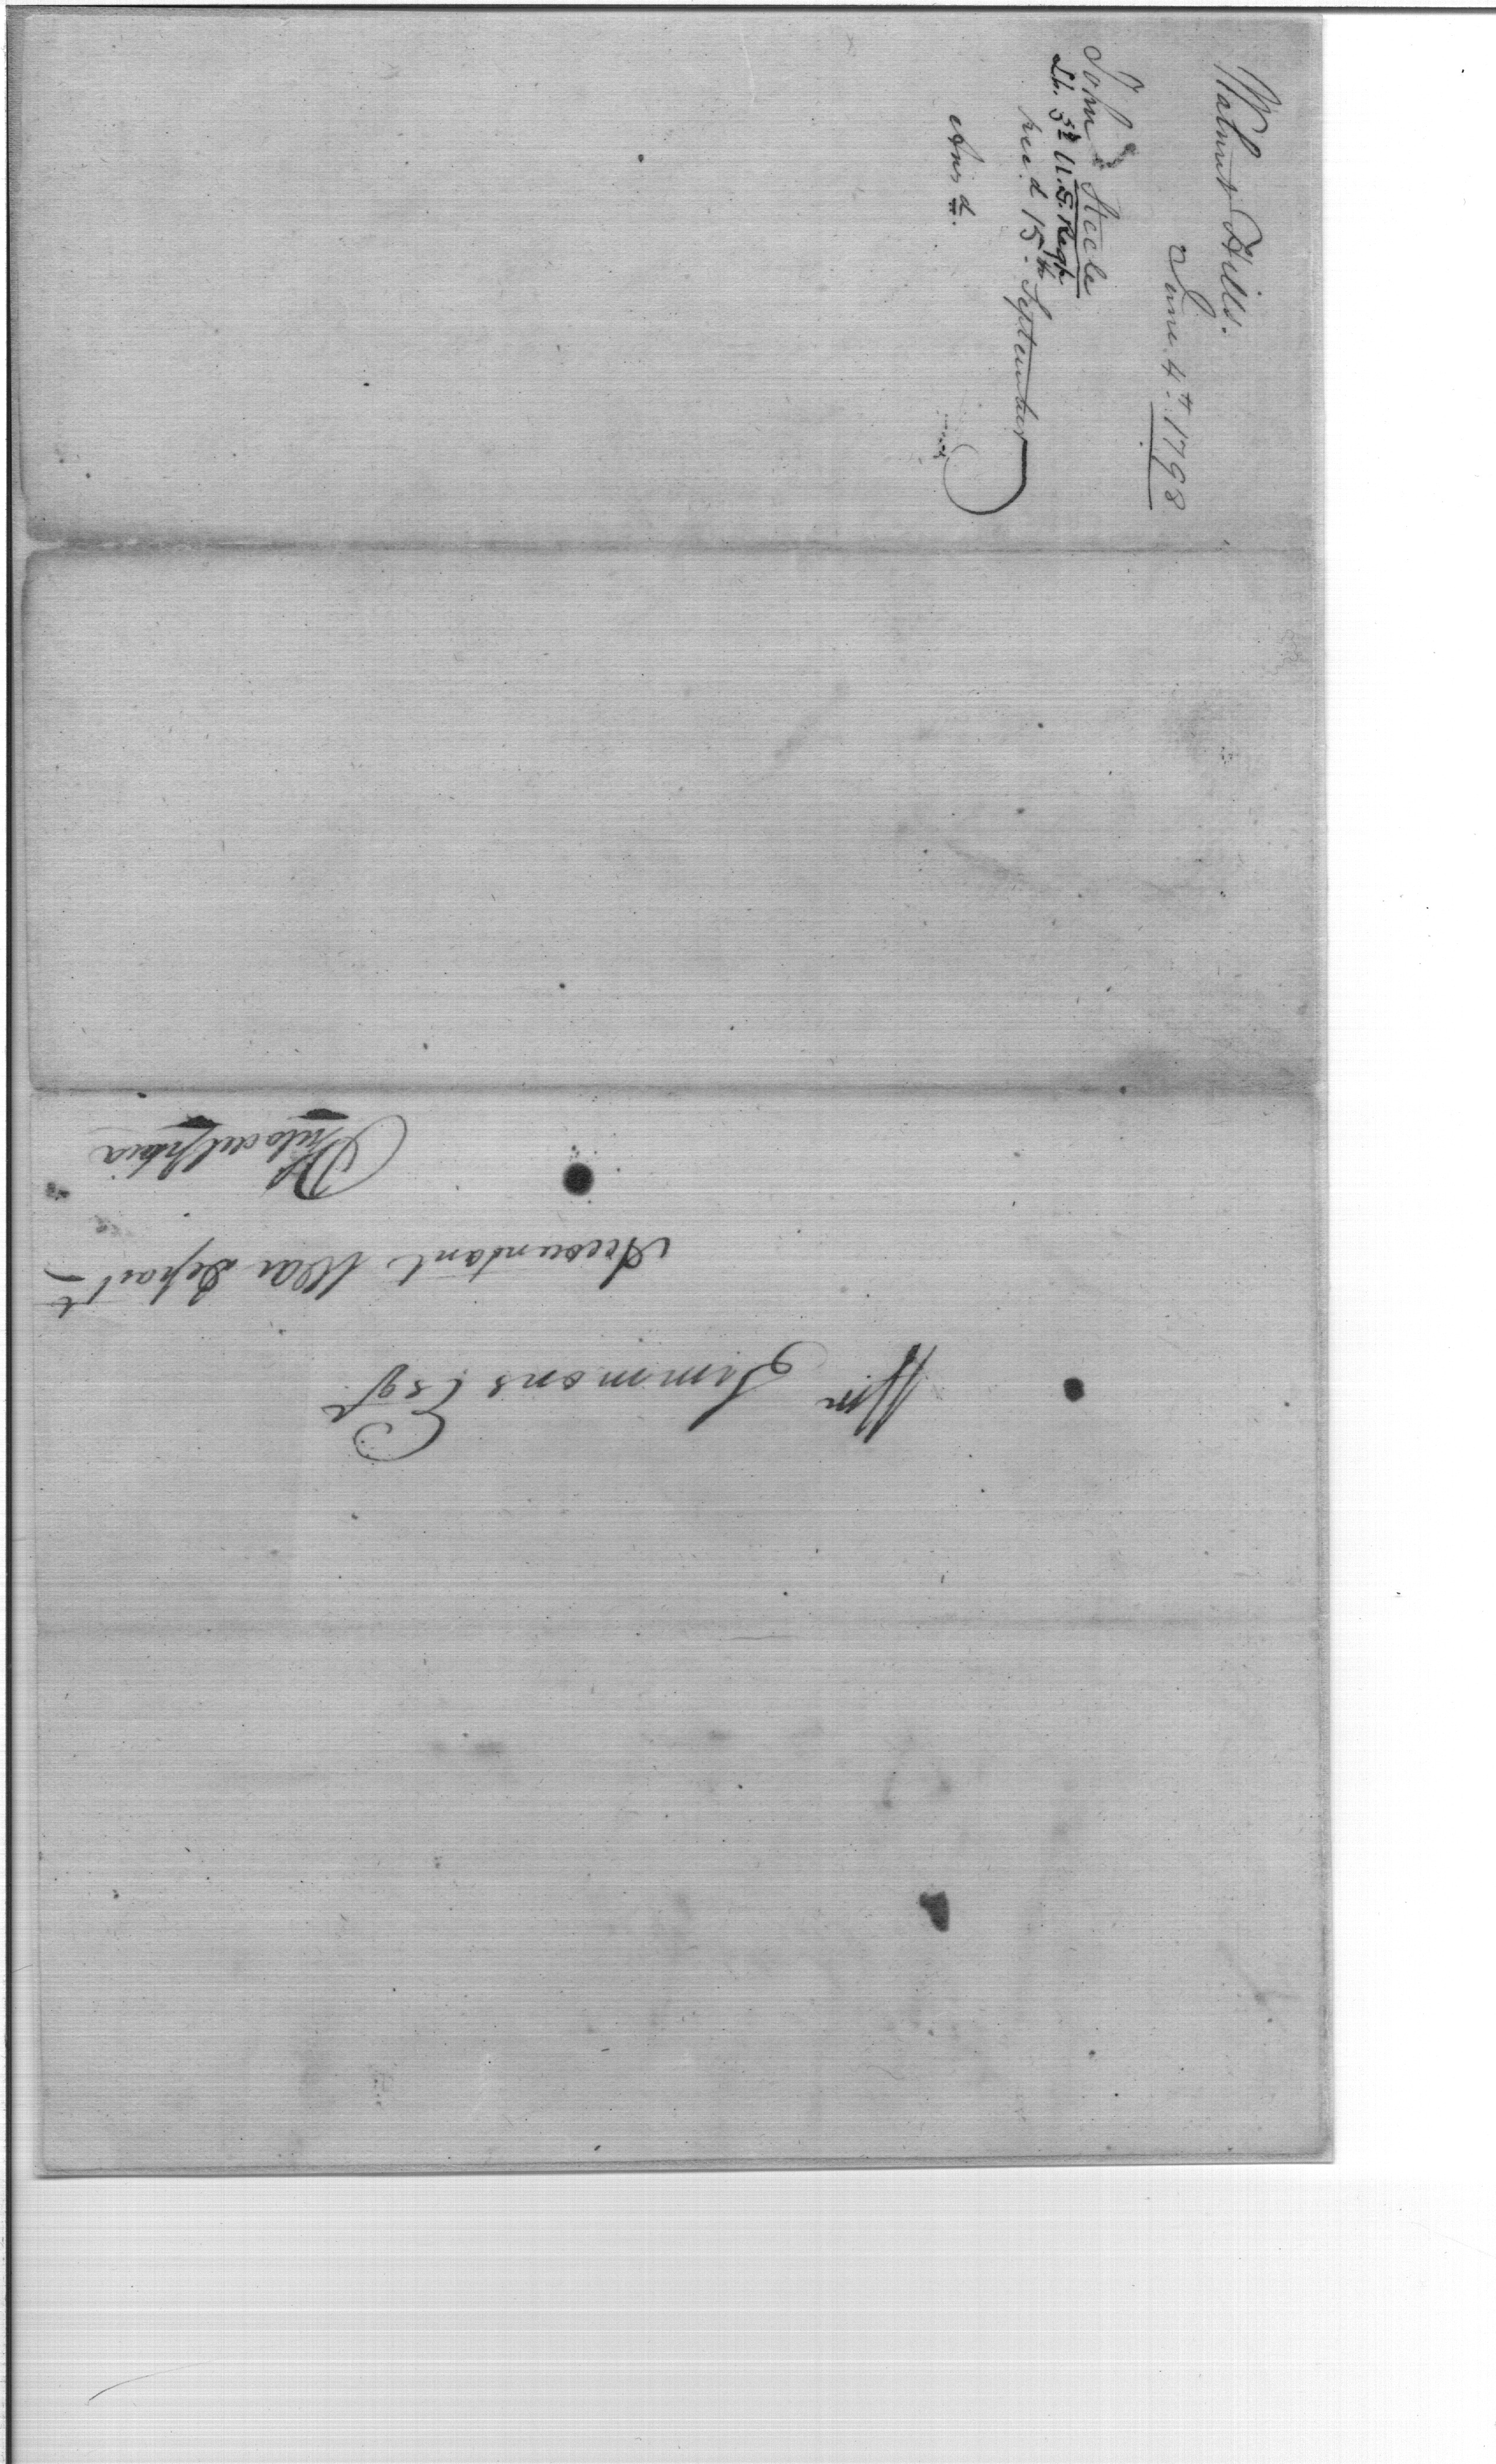 Walnut Hills.
June 4th. 1798
John Steele
Lt. 3d U.S. Regt
Recd 15th September
Ansd.
Wm Simmons Esqr
Accountant War Depart t
Philadelphia